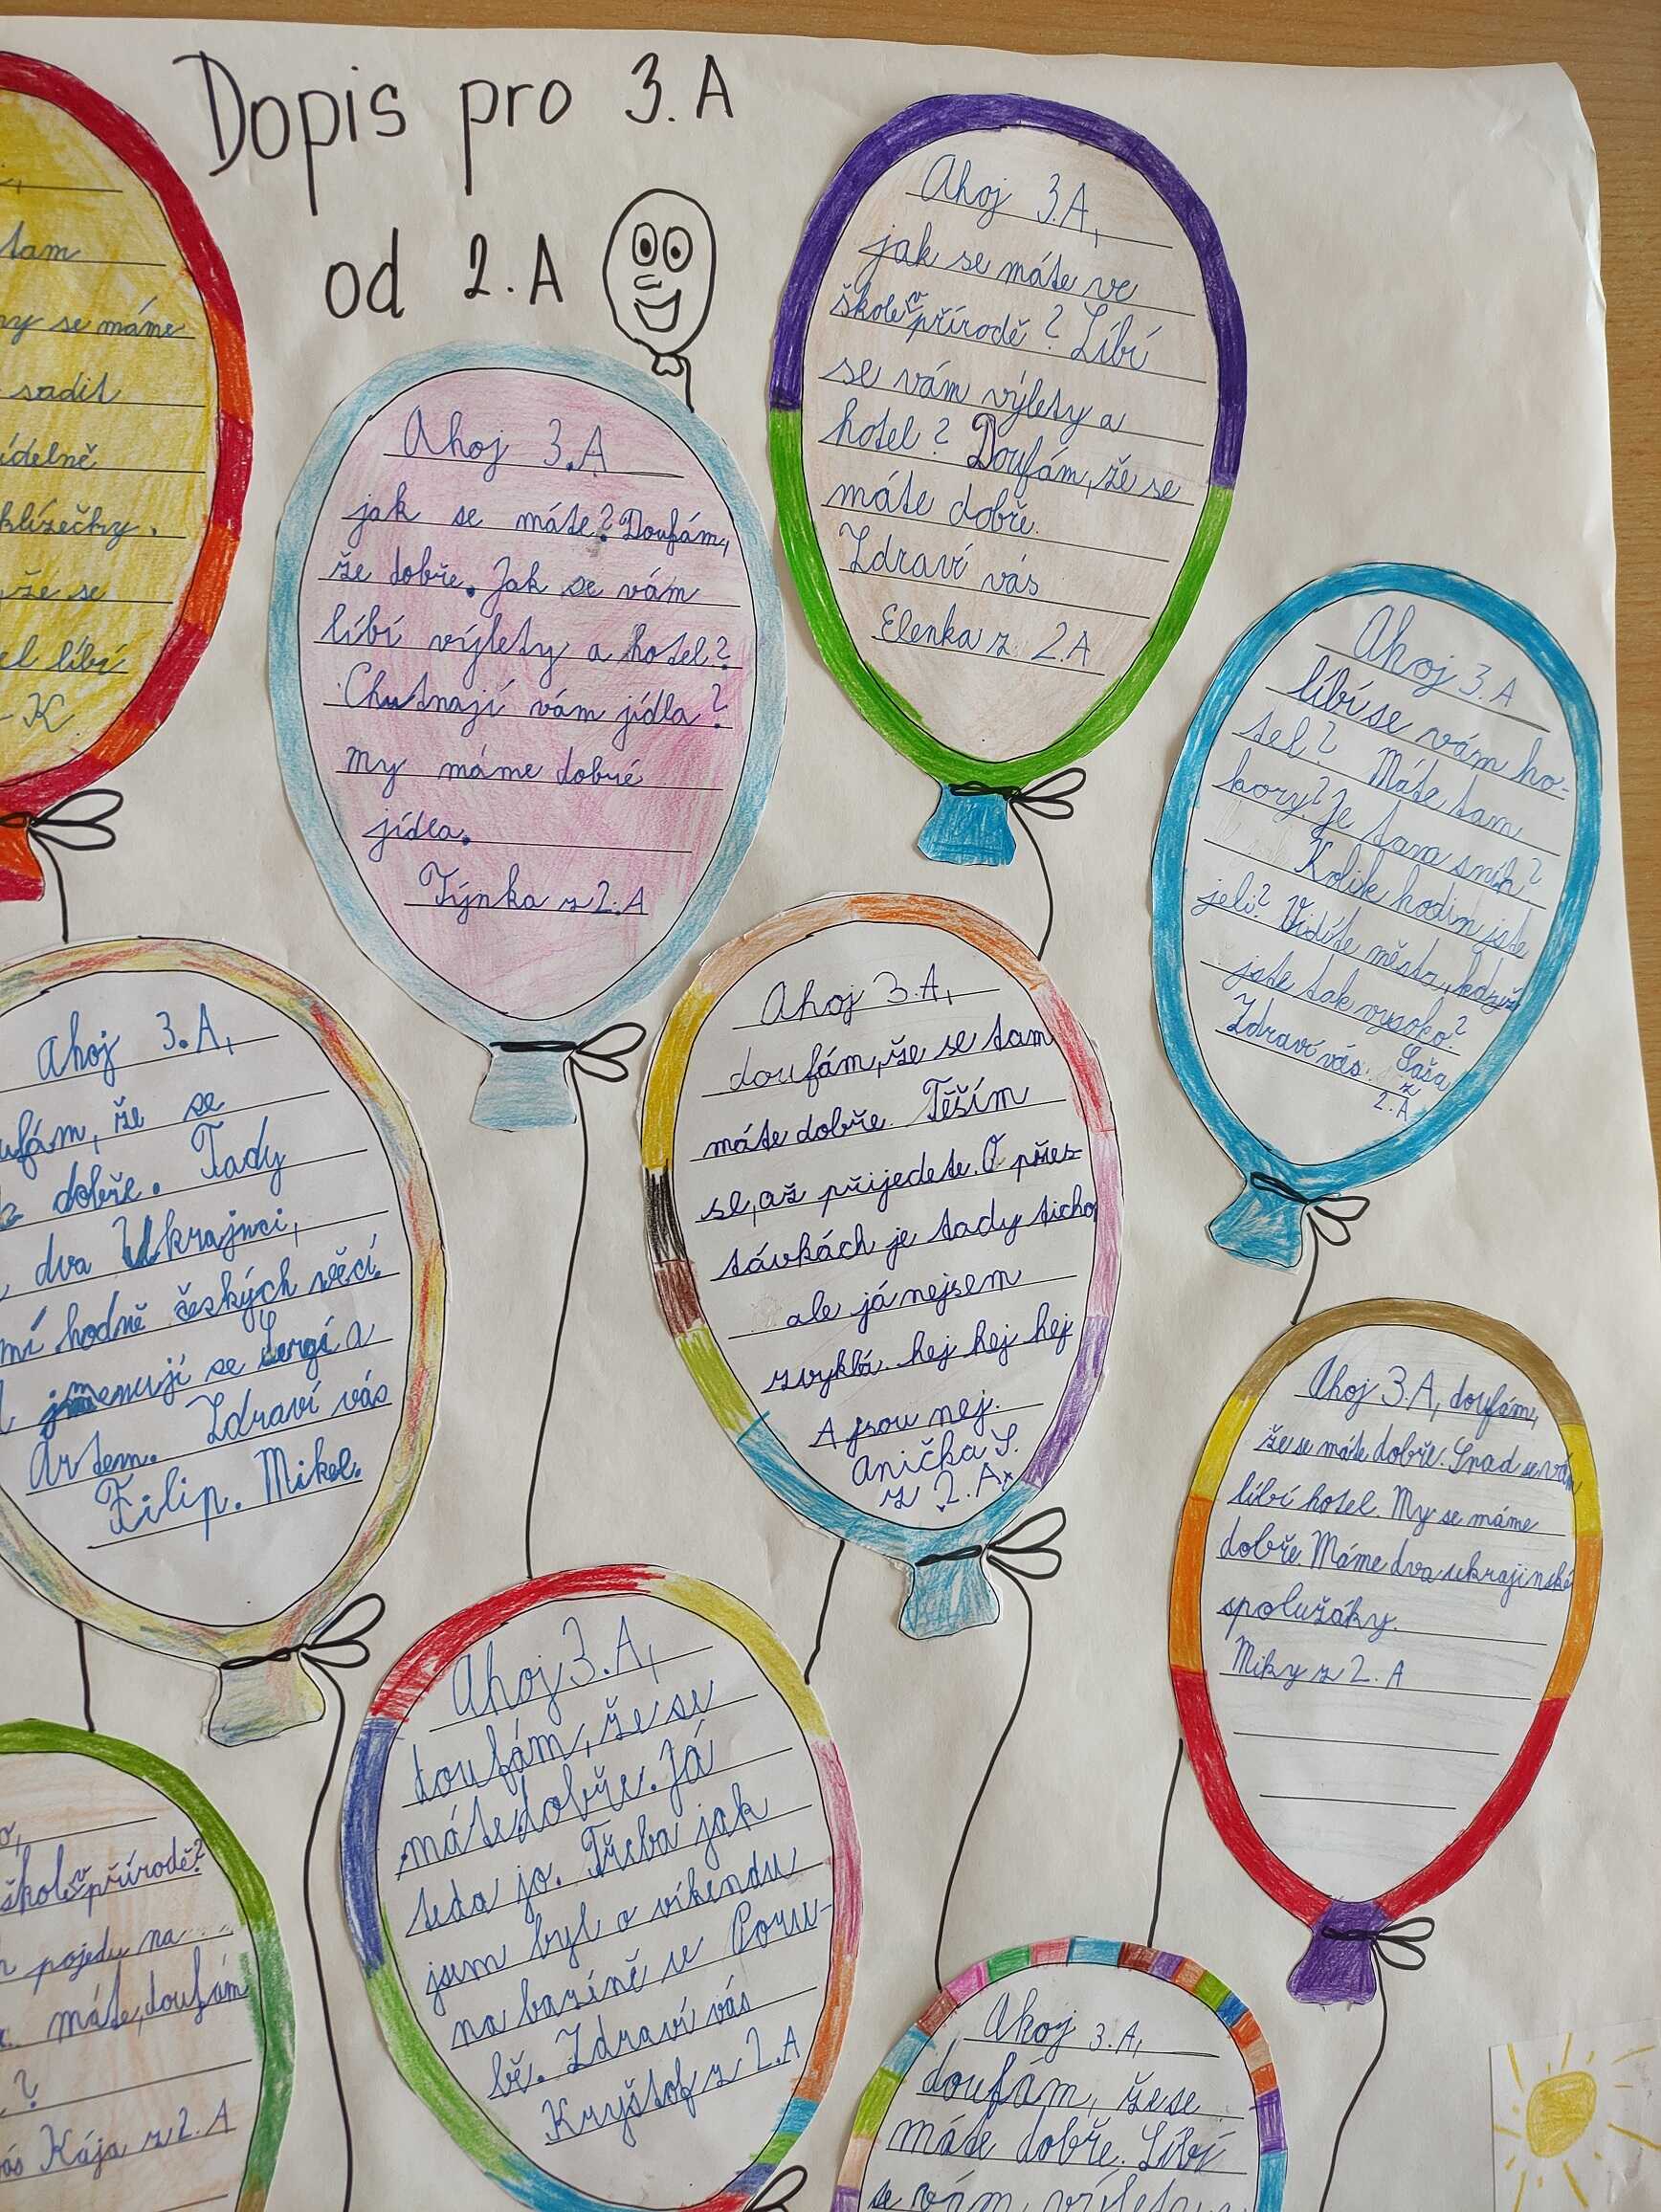 Dopis pro 3.A
od 2.A
tam
se máme
sadit
klízečky.
že se
líbí
K
Ahoj 3.A
jak se máte? Doufám,
že dobře. Jak se vám
líbí výlety a hotel?
Chutnají vám jídla?
My máme dobré
jídla.
Týnka z 2.A
Ahoj 3.A,
jak se máte ve
škole v přírodě? Líbí
se vám výlety a
hotel? Doufám, že se
máte dobře.
Zdraví vás
Elenka z 2.A
Ahoj 3.A
líbí se vám ho-
tel? Máte tam
hory? Je tam sníh?
Kolik hodin jste
jeli? Vidíte město, když
jste tak vysoko?
Zdraví vás Saša
z
2.A
Ahoj 3.A,
že se
dobře. Tady
dva Ukrajinci,
hodně českých věcí.
jmenují se Sergi a
Artem. Zdraví vás
Filip. Mikol.
Ahoj 3.A,
doufám, že se tam
máte dobře. Těším
se, až přijedete. O přes-
távkách je tady ticho,
ale já nejsem
zvyklá. hej hej hej
A jsou nej.
Anička S.
z 2.A
Ahoj 3.A, doufám,
že se máte dobře. Snad se vám
líbí hotel. My se máme
dobře. Máme dva ukrajinské
spolužáky.
Miky z 2.A
škole v přírodě?
pojedu na
máte, doufám
?
Kája z 2.A
Ahoj 3.A,
doufám, že se
máte dobře. Já
teda jo. Třeba jak
jsem byl o víkendu
na bazéně v Poru-
bě. Zdraví vás
Kryštof z 2.A
Ahoj 3.A,
doufám, že se
máte dobře. Líbí
se vám výlety